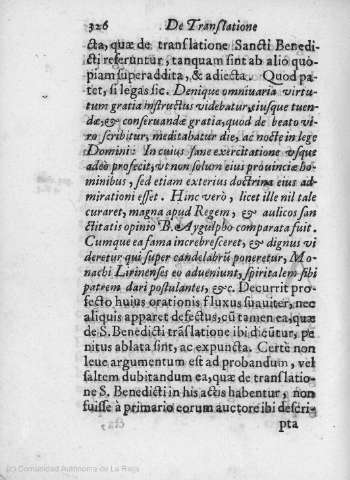 326 De Translatione
cta, quæ de translatione Sancti Benedi-
cti referuntur, tanquam sint ab alio quo-
piam superaddita, & adiecta. Quod pa-
tet, si legas sic. Denique omniuaria virtu-
tum gratia instructus videbatur, eiusque tuen-
dæ, & conseruandæ gratia, quod de beato vi-
ro scribitur, meditabatur die, ac nocte in lege
Domini: In cuius sane exercitatione vsque
adeò profecit, vt non solum eius prouinciæ ho-
minibus, sed etiam exterius doctrina eius ad-
mirationi esset. Hinc verò, licet ille nil tale
curaret, magna apud Regem, & aulicos san
ctitatis opinio B. Aygulpho comparata fuit.
Cumque ea fama increbresceret, & dignus vi
deretur qui super candelabrũ poneretur, Mo-
nachi Lirinenses eo adueniunt, spiritalem sibi
patrem dari postulantes, &c. Decurrit pro-
fecto huius orationis fluxus suauiter, nec
aliquis apparet defectus, cũ tamen ea, quæ
de S. Benedicti trãslatione ibi dicũtur, pe-
nitus ablata sint, ac expuncta. Certè non
leue argumentum est ad probandum, vel
saltem dubitandum ea, quæ de translatio-
ne S. Benedicti in his actis habentur, non
fuisse à primario eorum auctore ibi descri-
pta
(c) Comunidad Autónoma de La Rioja